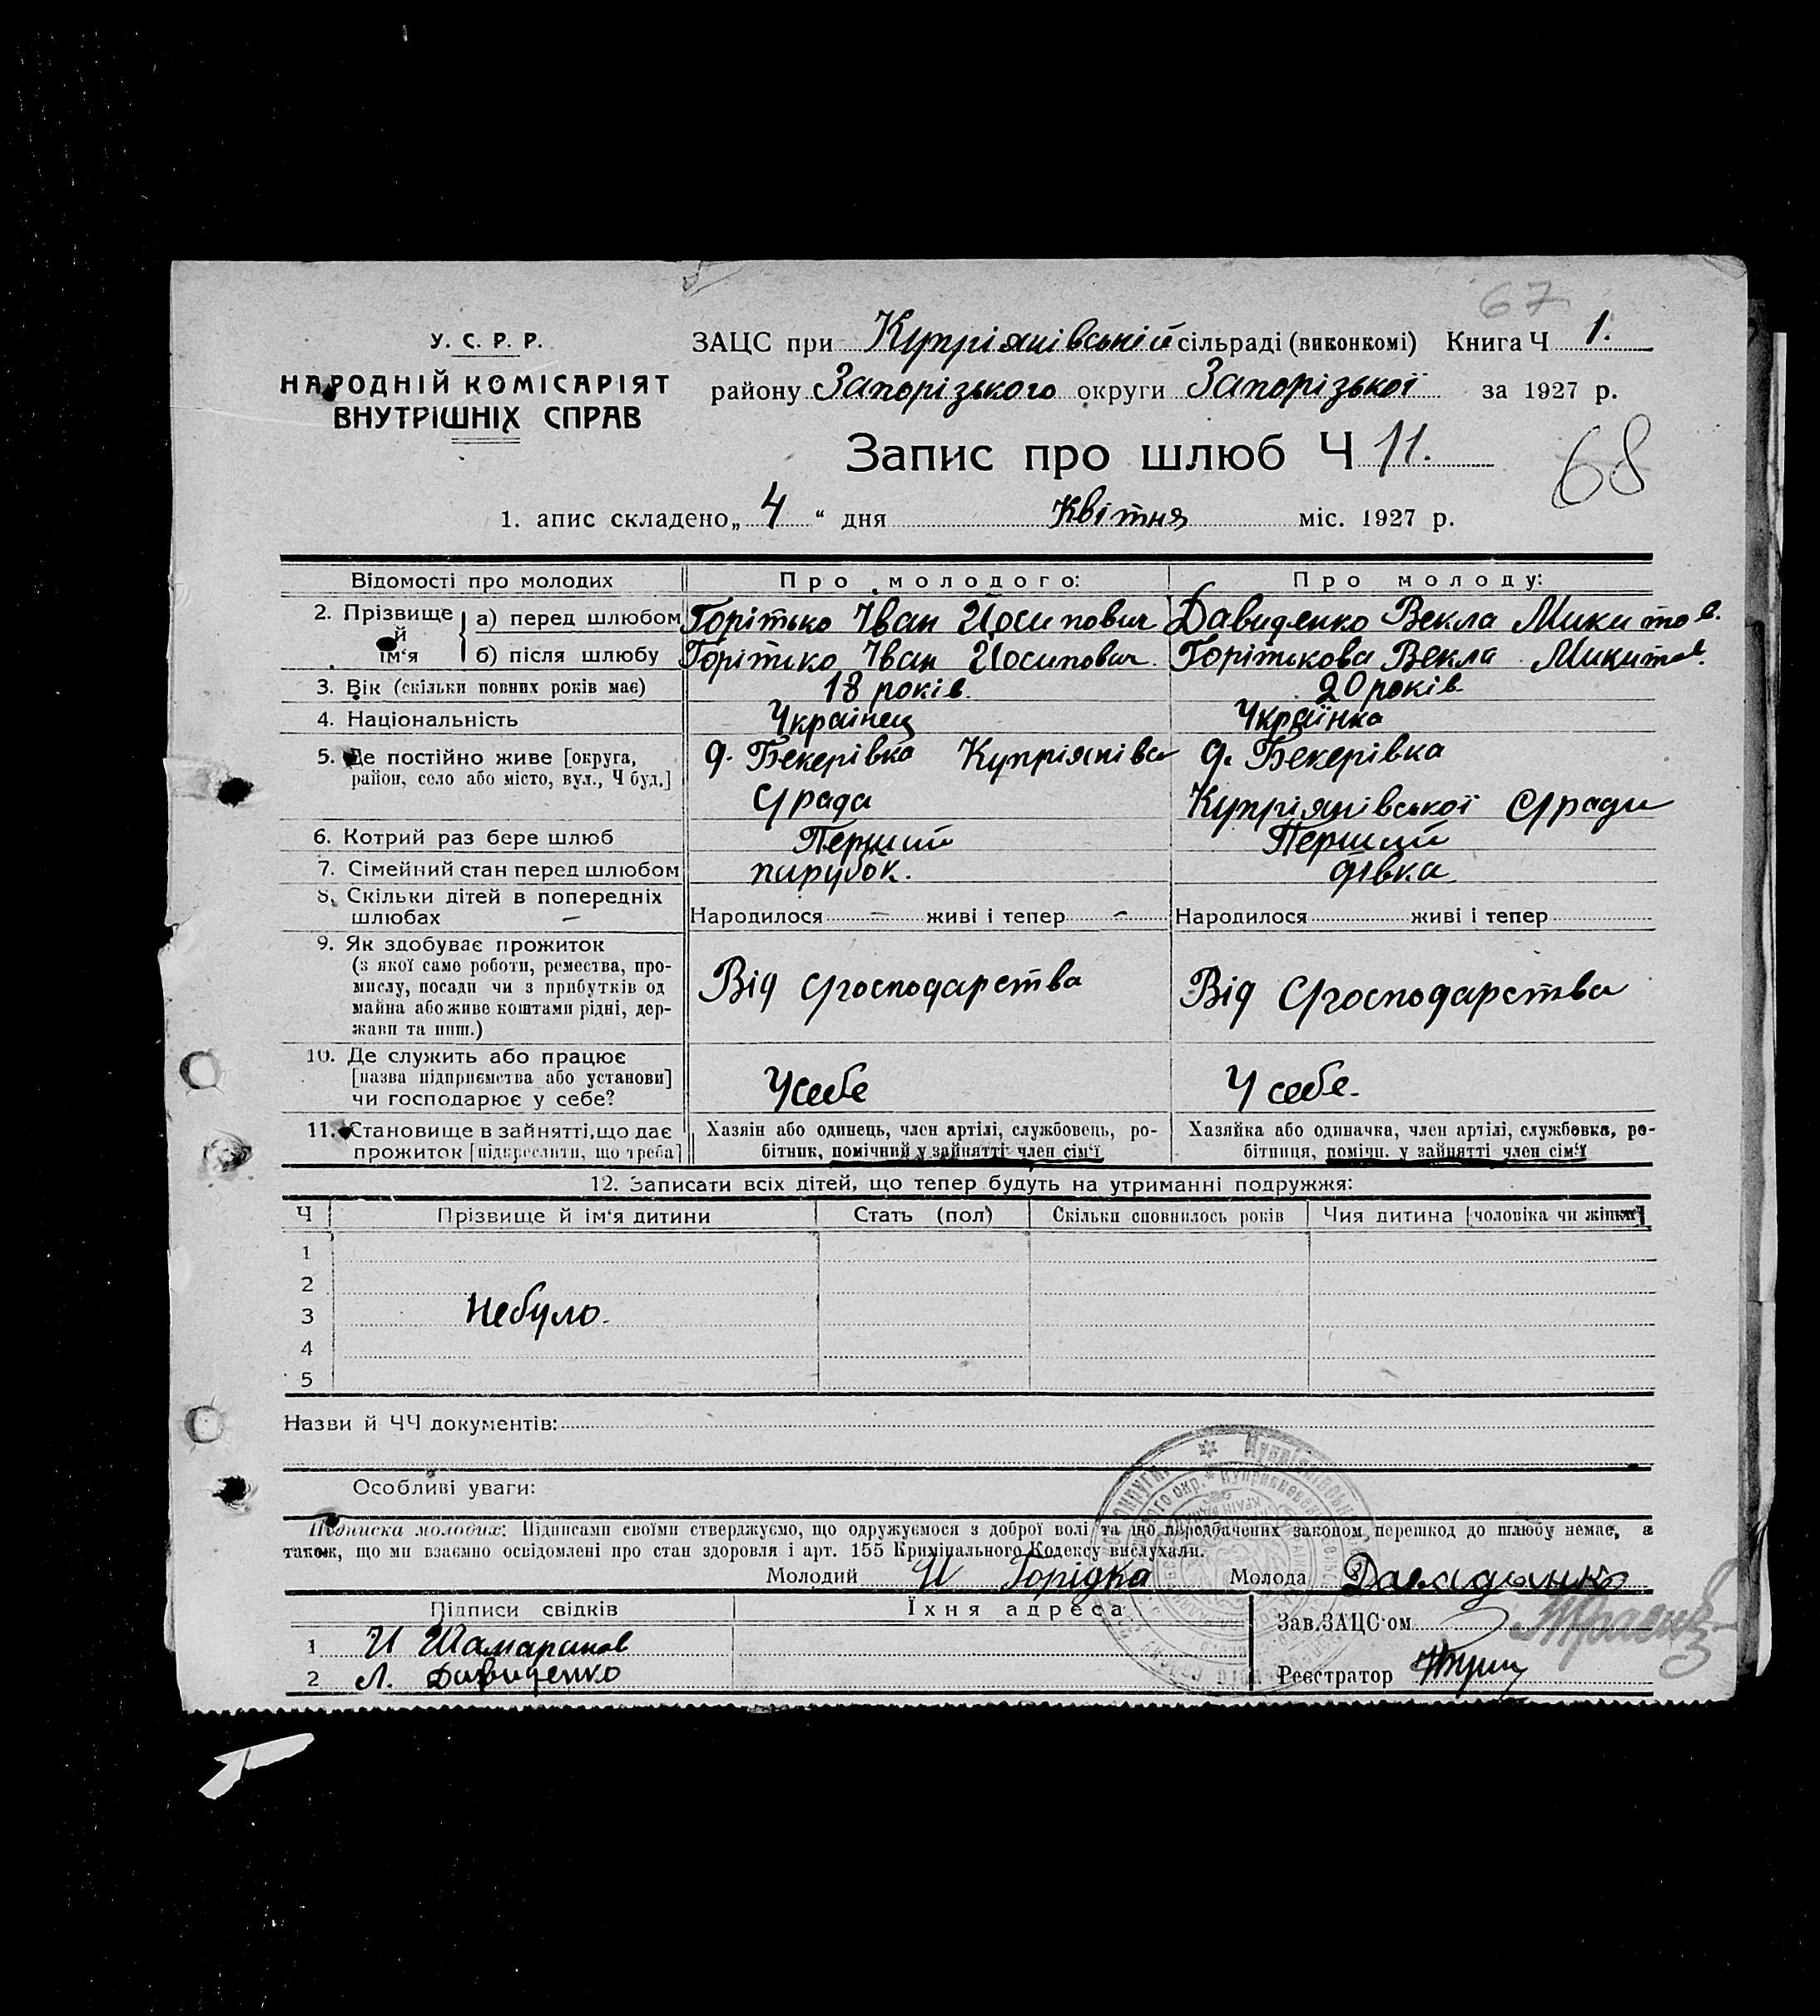 67
У. С. Р. Р.
НАРОДНІЙ КОМІСАРІЯТ
ВНУТРІШНІХ СПРАВ
ЗАЦС при Купріянівській сільраді (виконкомі) Книга Ч 1.
району Запорізького округи Запорізької за 1927 р.
Запис про шлюб Ч 11.
68
1. апис складено „ 4 “ дня Квітня міс. 1927 р.
Відомості про молодих Про молодого: Про молоду:
2. Прізвище й ім'я а) перед шлюбом Горітько Іван Йосипович Давиденко Векла Микитов.
б) після шлюбу Горітько Іван Йосипович. Горітькова Векла Микитов.
3. Вік (скільки повних років має) 18 років 20 років
4. Національність Українец Українка
5. Де постійно живе [округа, район, село або місто, вул., Ч буд.] д. Бекерівка Купріянівс д. Бекерівка
С/рада Купріянівської С/ради
6. Котрий раз бере шлюб Перший Перший
7. Сімейний стан перед шлюбом парубок. дівка
8. Скільки дітей в попередніх
шлюбах – Народилося – живі і тепер – Народилося живі і тепер
9. Як здобуває прожиток
(з якої саме роботи, ремества, про-
мислу, посади чи з прибутків од
майна або живе коштами рідні, дер-
жави та инш.) Від С/господарства Від С/господарства
10. Де служить або працює
[назва підприємства або установи]
чи господарює у себе? У себе У себе.
11. Становище в зайнятті, що дає
прожиток [підкреслити, що треба]
Хазяін або одинець, член артілі, службовець, ро-
бітник, помічний у зайнятті член сім'ї
Хазяйка або одиначка, член артілі, службовка, ро-
бітниця, помічн. у зайнятті член сім'ї
12. Записати всіх дітей, що тепер будуть на утриманні подружжя:
Ч Прізвище й ім'я дитини Стать (пол) Скільки сповнилось років Чия дитина [чоловіка чи жінки]
1
2
3 Небуло.
4
5
Назви й ЧЧ документів:
Особливі уваги:
Підписка молодих: Підписами своїми стверджуємо, що одружуємося з доброї волі та що передбачених законом перешкод до шлюбу немає, а
також, що ми взаємно освідомлені про стан здоровля і арт. 155 Кримінального Кодексу вислухали.
Молодий И Горідка Молода Давиденко
Підписи свідків Їхня адреса Зав. ЗАЦС'ом
1 И Шамаринов
2 Л. Давиденко Реєстратор